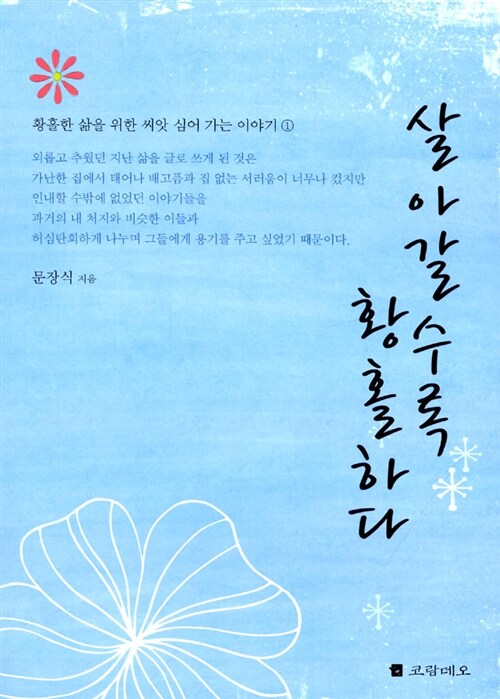 황홀한 삶을 위한 씨앗 심어 가는 이야기 ①
외롭고 추웠던 지난 삶을 글로 쓰게 된 것은
가난한 집에서 태어나 배고픔과 집 없는 서러움이 너무나 컸지만
인내할 수밖에 없었던 이야기들을
과거의 내 처지와 비슷한 이들과
허심탄회하게 나누며 그들에게 용기를 주고 싶었기 때문이다.
문장식 지음
살아갈수록
황홀하다
코람데오